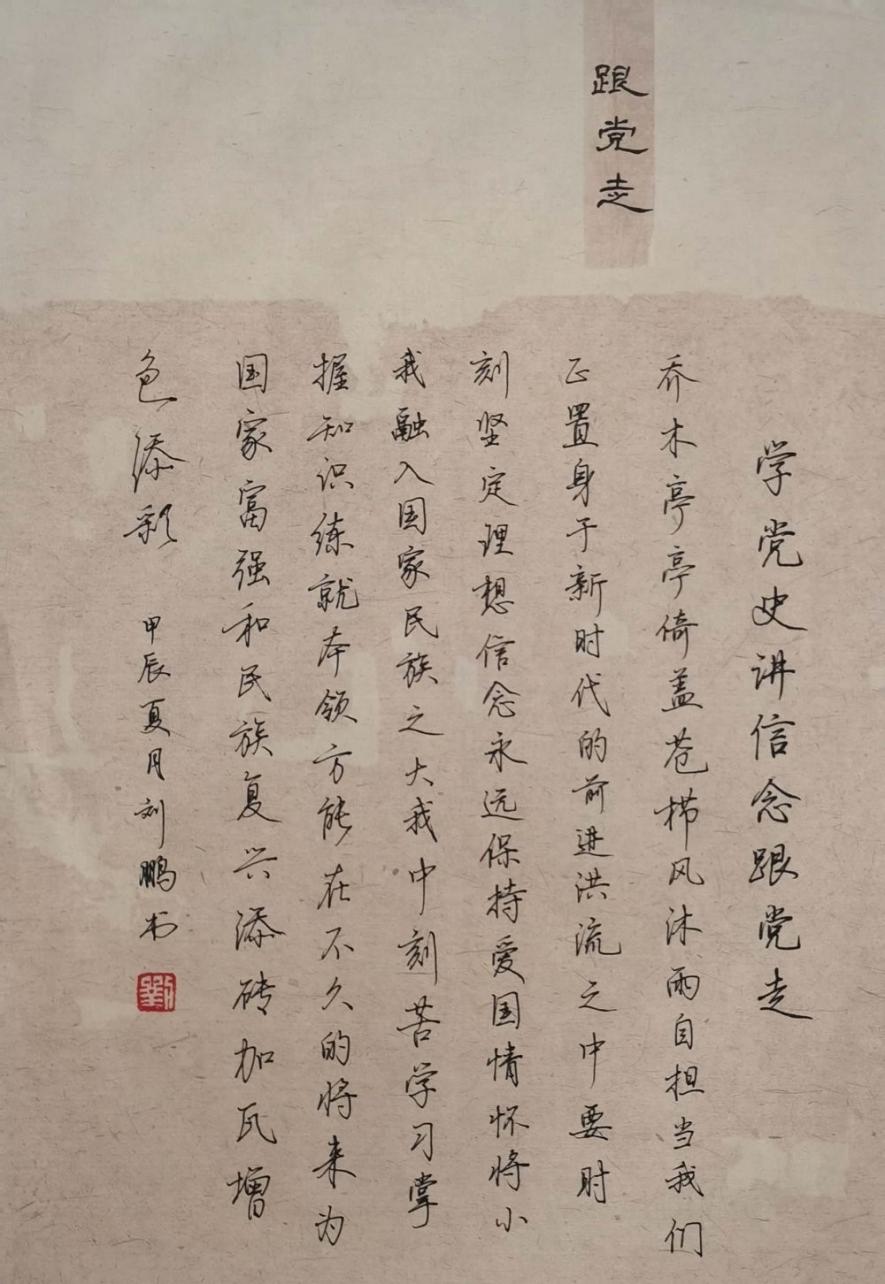 跟党走
学党史讲信念跟党走
乔木亭亭倚盖苍栉风沐雨自担当我们
正置身于新时代的前进洪流之中要时
刻坚定理想信念永远保持爱国情怀将小
我融入国家民族之大我中刻苦学习掌
握知识练就本领方能在不久的将来为
国家富强和民族复兴添砖加瓦增
色添彩
甲辰夏月刘鹏书
劉